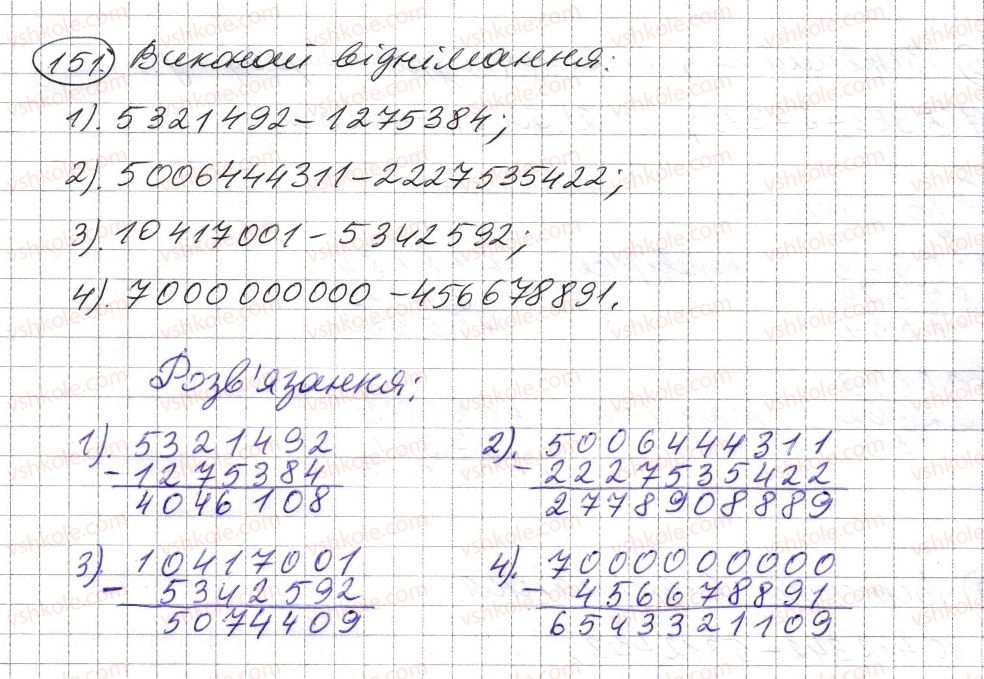 151. Виконай віднімання:
1). 5321492-1275384;
2). 5006444311-2227535422;
3). 10417001-5342592;
4). 7000000000-456678891.
Розв'язання:
1). 5321492
- 1275384
4046108
2). 5006444311
- 2227535422
2778908889
3). 10417001
- 5342592
5074409
4). 7000000000
- 456678891
6543321109